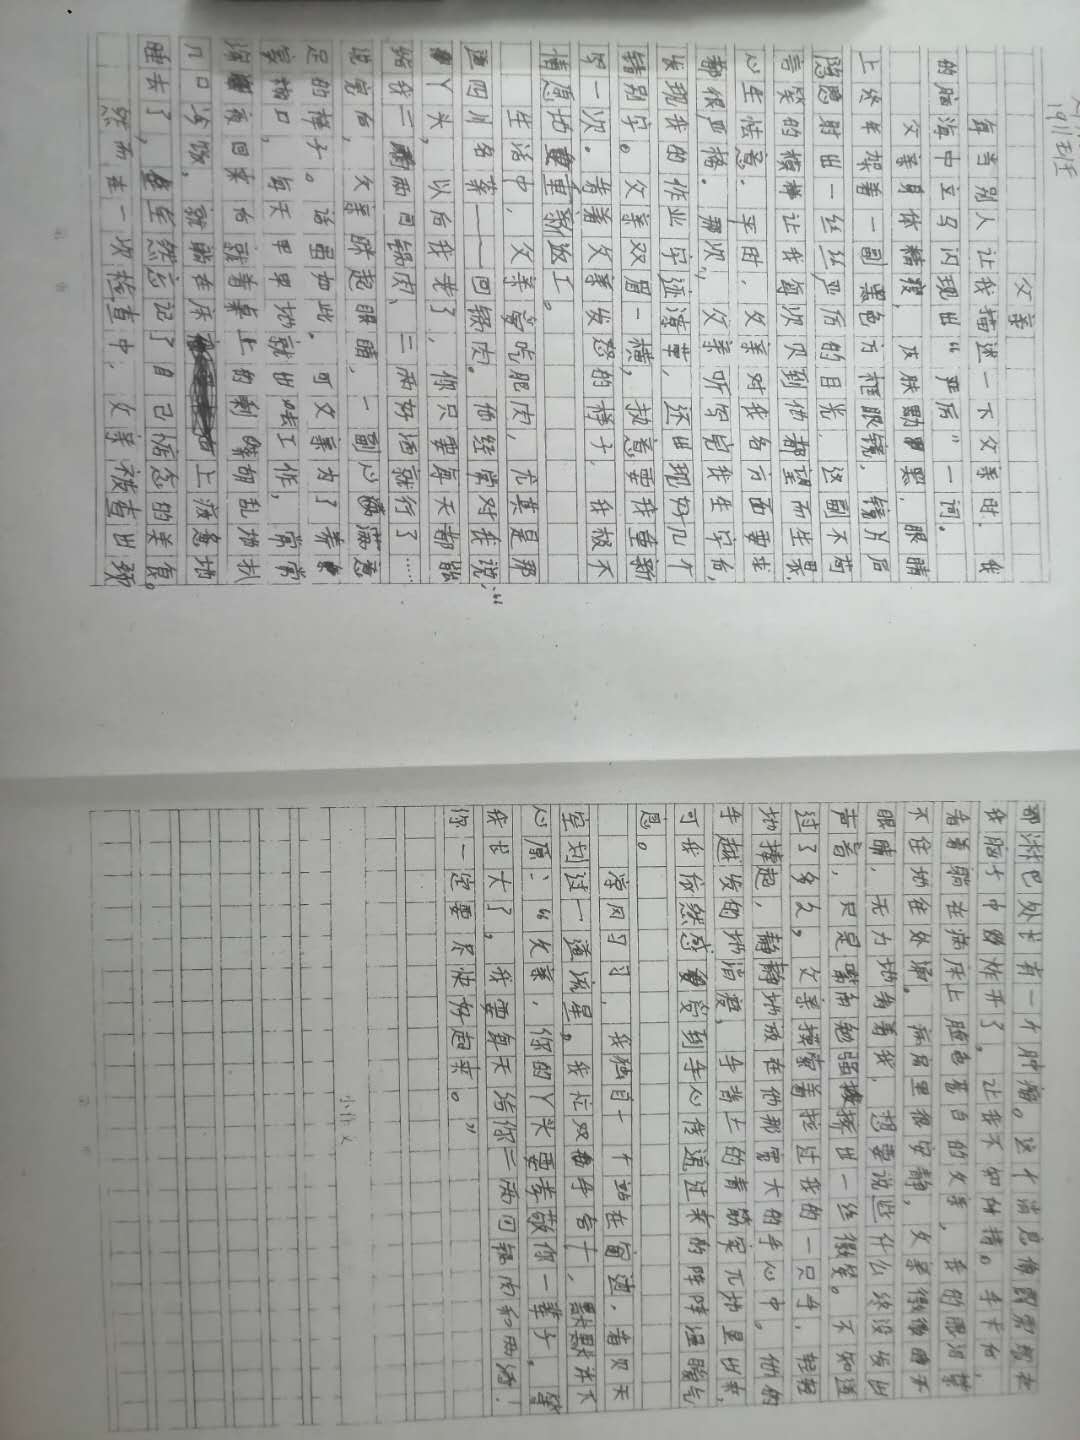 191班
父亲
每当别人让我描述一下父亲时，我
的脑海中立马闪现出“严厉”一词。
父亲身体精瘦，皮肤黝黑，眼睛
上终年架着一副黑色方框眼镜，镜片后
隐隐射出一丝丝严厉的目光，这副不苟
言笑的模样让我每次见到他都望而生畏，
心生怯意。平时，父亲对我各方面要求
都很严格。那次，父亲听写完我生字后，
发现我的作业字迹潦草，还出现好几个
错别字。父亲双眉一横，执意要我重新
写一次。看着父亲发怒的样子，我极不
情愿地重新返工。
生活中，父亲爱吃肥肉，尤其是那
道四川名菜——回锅肉。他经常对我说：“
丫头，以后我老了，你只要每天都能
给我二两回锅肉、三两好酒就行了……
说完后，父亲眯起眼睛，一副心满意
足的样子。话虽如此，可父亲为了养
家糊口，每天早早地就出去工作，常常
深夜回来后就着桌上的剩菜胡乱地扒
几口冷饭，就躺在床上疲惫地
睡去了，全然忘记了自己病态的关节。
然而在一次检查中，父亲被查出颈
部淋巴处长有一个肿瘤。这个消息像雷霹在
我脑子中炸开了，让我不知所措。手术后，
看着躺在病床上脸色苍白的父亲，我的眼泪禁
不住地往外涌。病房里很安静，父亲微微睁开
眼睛，无力地看着我，想要说些什么终没发出
声音，只是嘴角勉强挤出一丝微笑。不知道
过了多久，父亲摸索着拉过我的一只手，轻轻
地握起，静静地放在他那宽大的手心中。他的
手越发的地消瘦，手背上的青筋突兀地显出来，
可我依然感受到手心传递过来的阵阵温暖气
息。
凉风习习，我独自一个站在窗边，看见天
空划过一道流星。我忙双手合十，默默许下
心愿：“父亲，你的丫头要孝敬你一辈子。等
我长大了，我要每天给你二两回锅肉和两酒！
你一定要尽快好起来。”
小作文